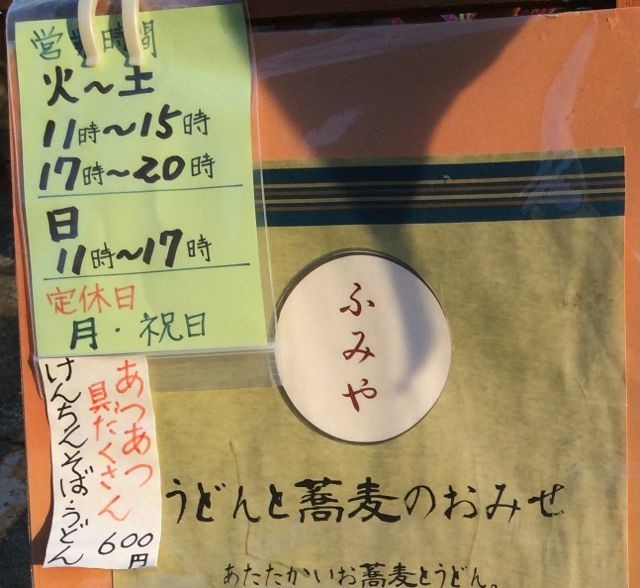 営業時間
火～土
11時～15時
17時～20時
日
11時～17時
定休日
月・祝日
あつあつ
具だくさん
けんちんそば・うどん
600円
ふみや
うどんと蕎麦のおみせ
あたたかいお蕎麦とうどん。